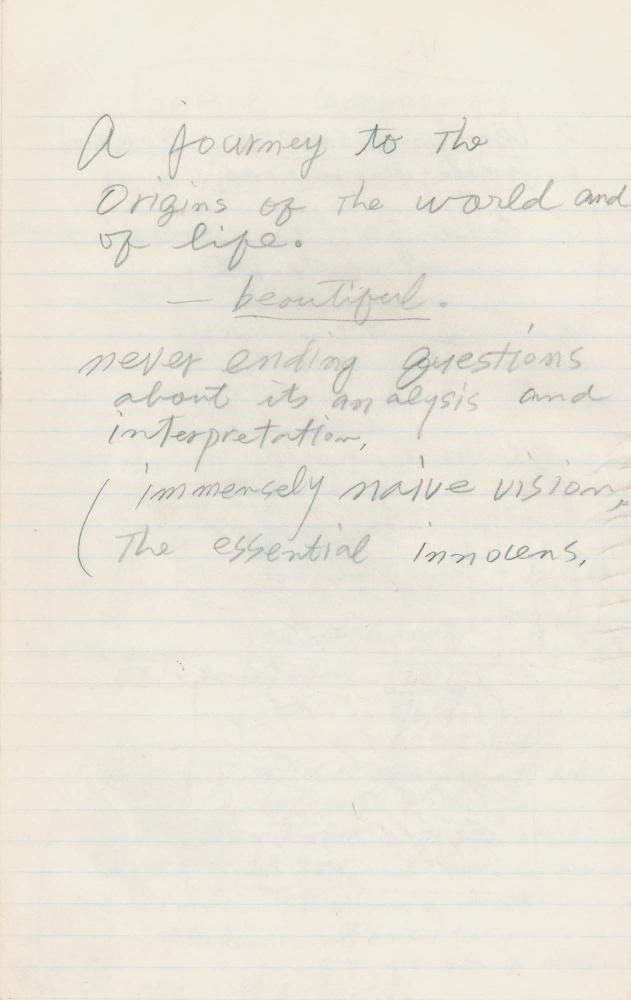 A journey to the
Origins of the world and
of life.
— beautiful.
never ending questions
about its analysis and
interpretation,
( immensely naive vision,
The essential innocens,